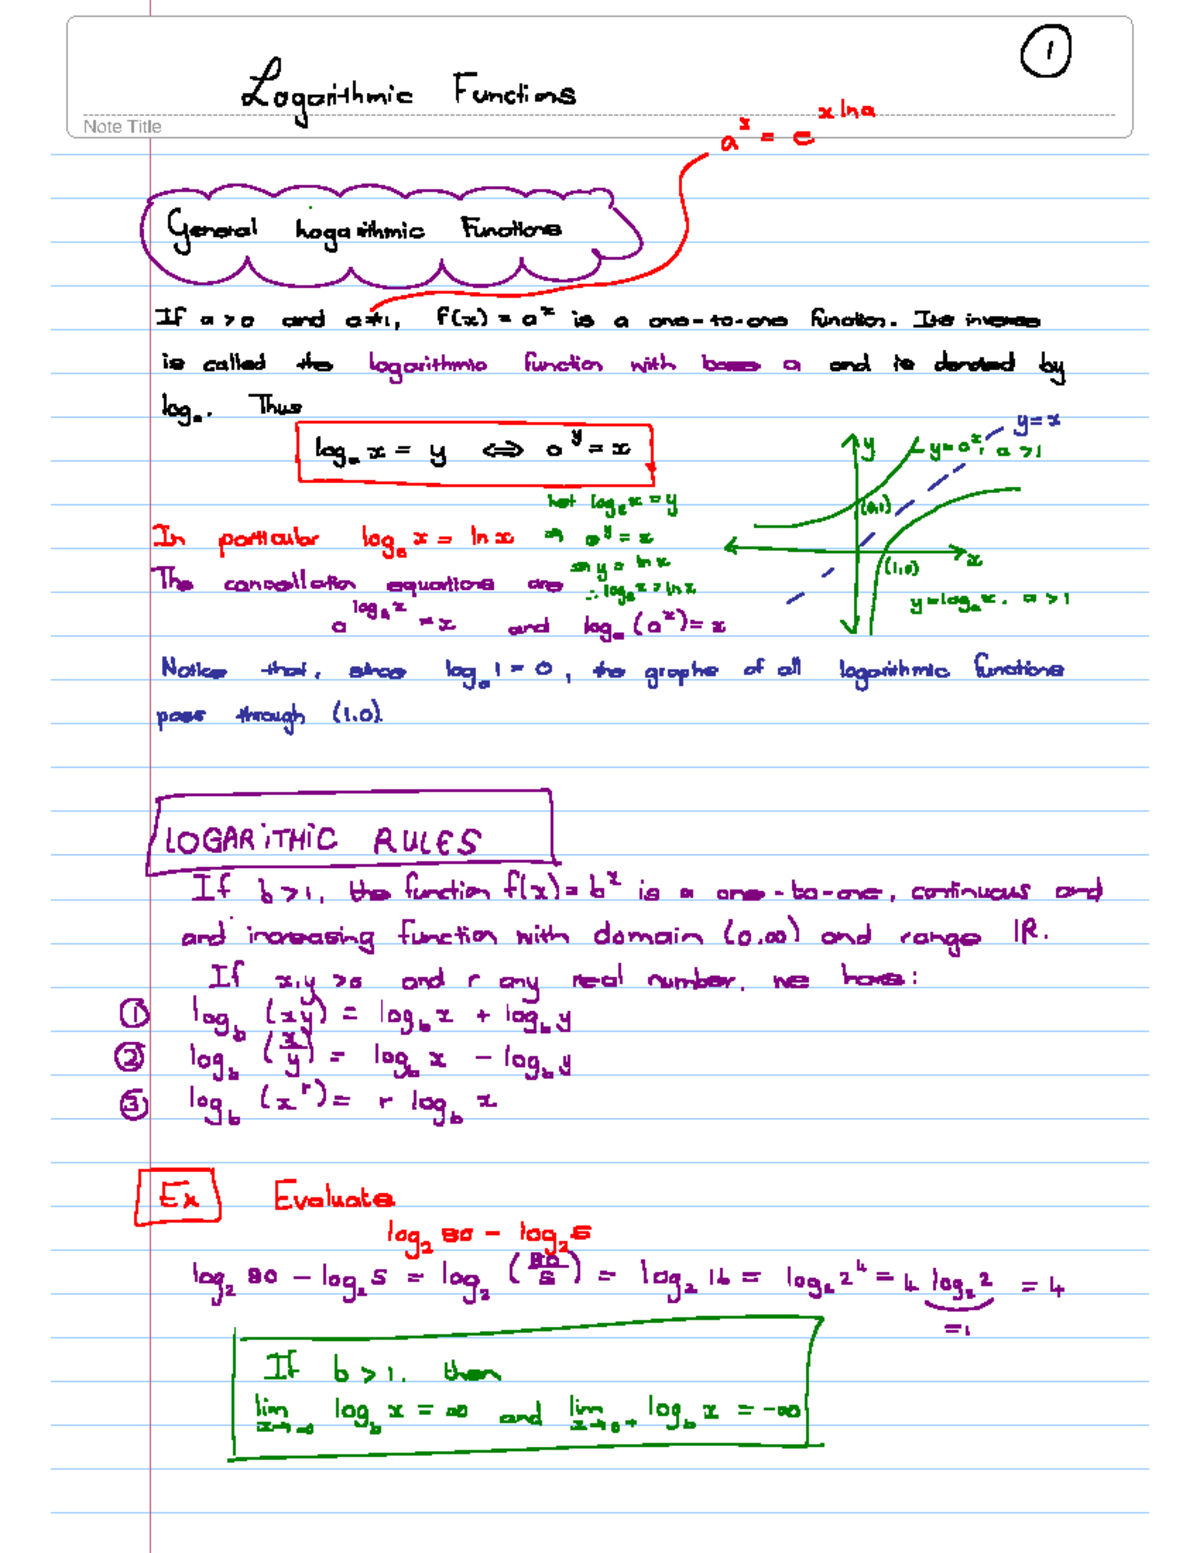 1
Logarithmic Functions
Note Title
a^x = e^(x ln a)
General Logarithmic Functions
If a > 0 and a ≠ 1, f(x) = a^x is a one-to-one function. Its inverse
is called the logarithmic function with base a and is denoted by
log_a. Thus
log_a x = y ⟺ a^y = x
y = x
y
y = a^x, a > 1
(0,1)
x
(1,0)
y = log_a x, a > 1
Let log_e x = y
In particular log_e x = ln x ⇒ e^y = x
⇒ y = ln x
The cancellation equations are ∴ log_e x = ln x
a^(log_a x) = x and log_a (a^x) = x
Notice that, since log_a 1 = 0, the graphs of all logarithmic functions
pass through (1,0).
LOGARITHMIC RULES
If b > 1, the function f(x) = b^x is a one-to-one, continuous and
and increasing function with domain (0,∞) and range IR.
If x,y > 0 and r any real number, we have:
① log_b (xy) = log_b x + log_b y
② log_b (x/y) = log_b x - log_b y
③ log_b (x^r) = r log_b x
Ex Evaluate
log_2 80 - log_2 5
log_2 80 - log_2 5 = log_2 (80/5) = log_2 16 = log_2 2^4 = 4 log_2 2 = 4
= 1
If b > 1, then
lim x→∞ log_b x = ∞ and lim x→0+ log_b x = -∞